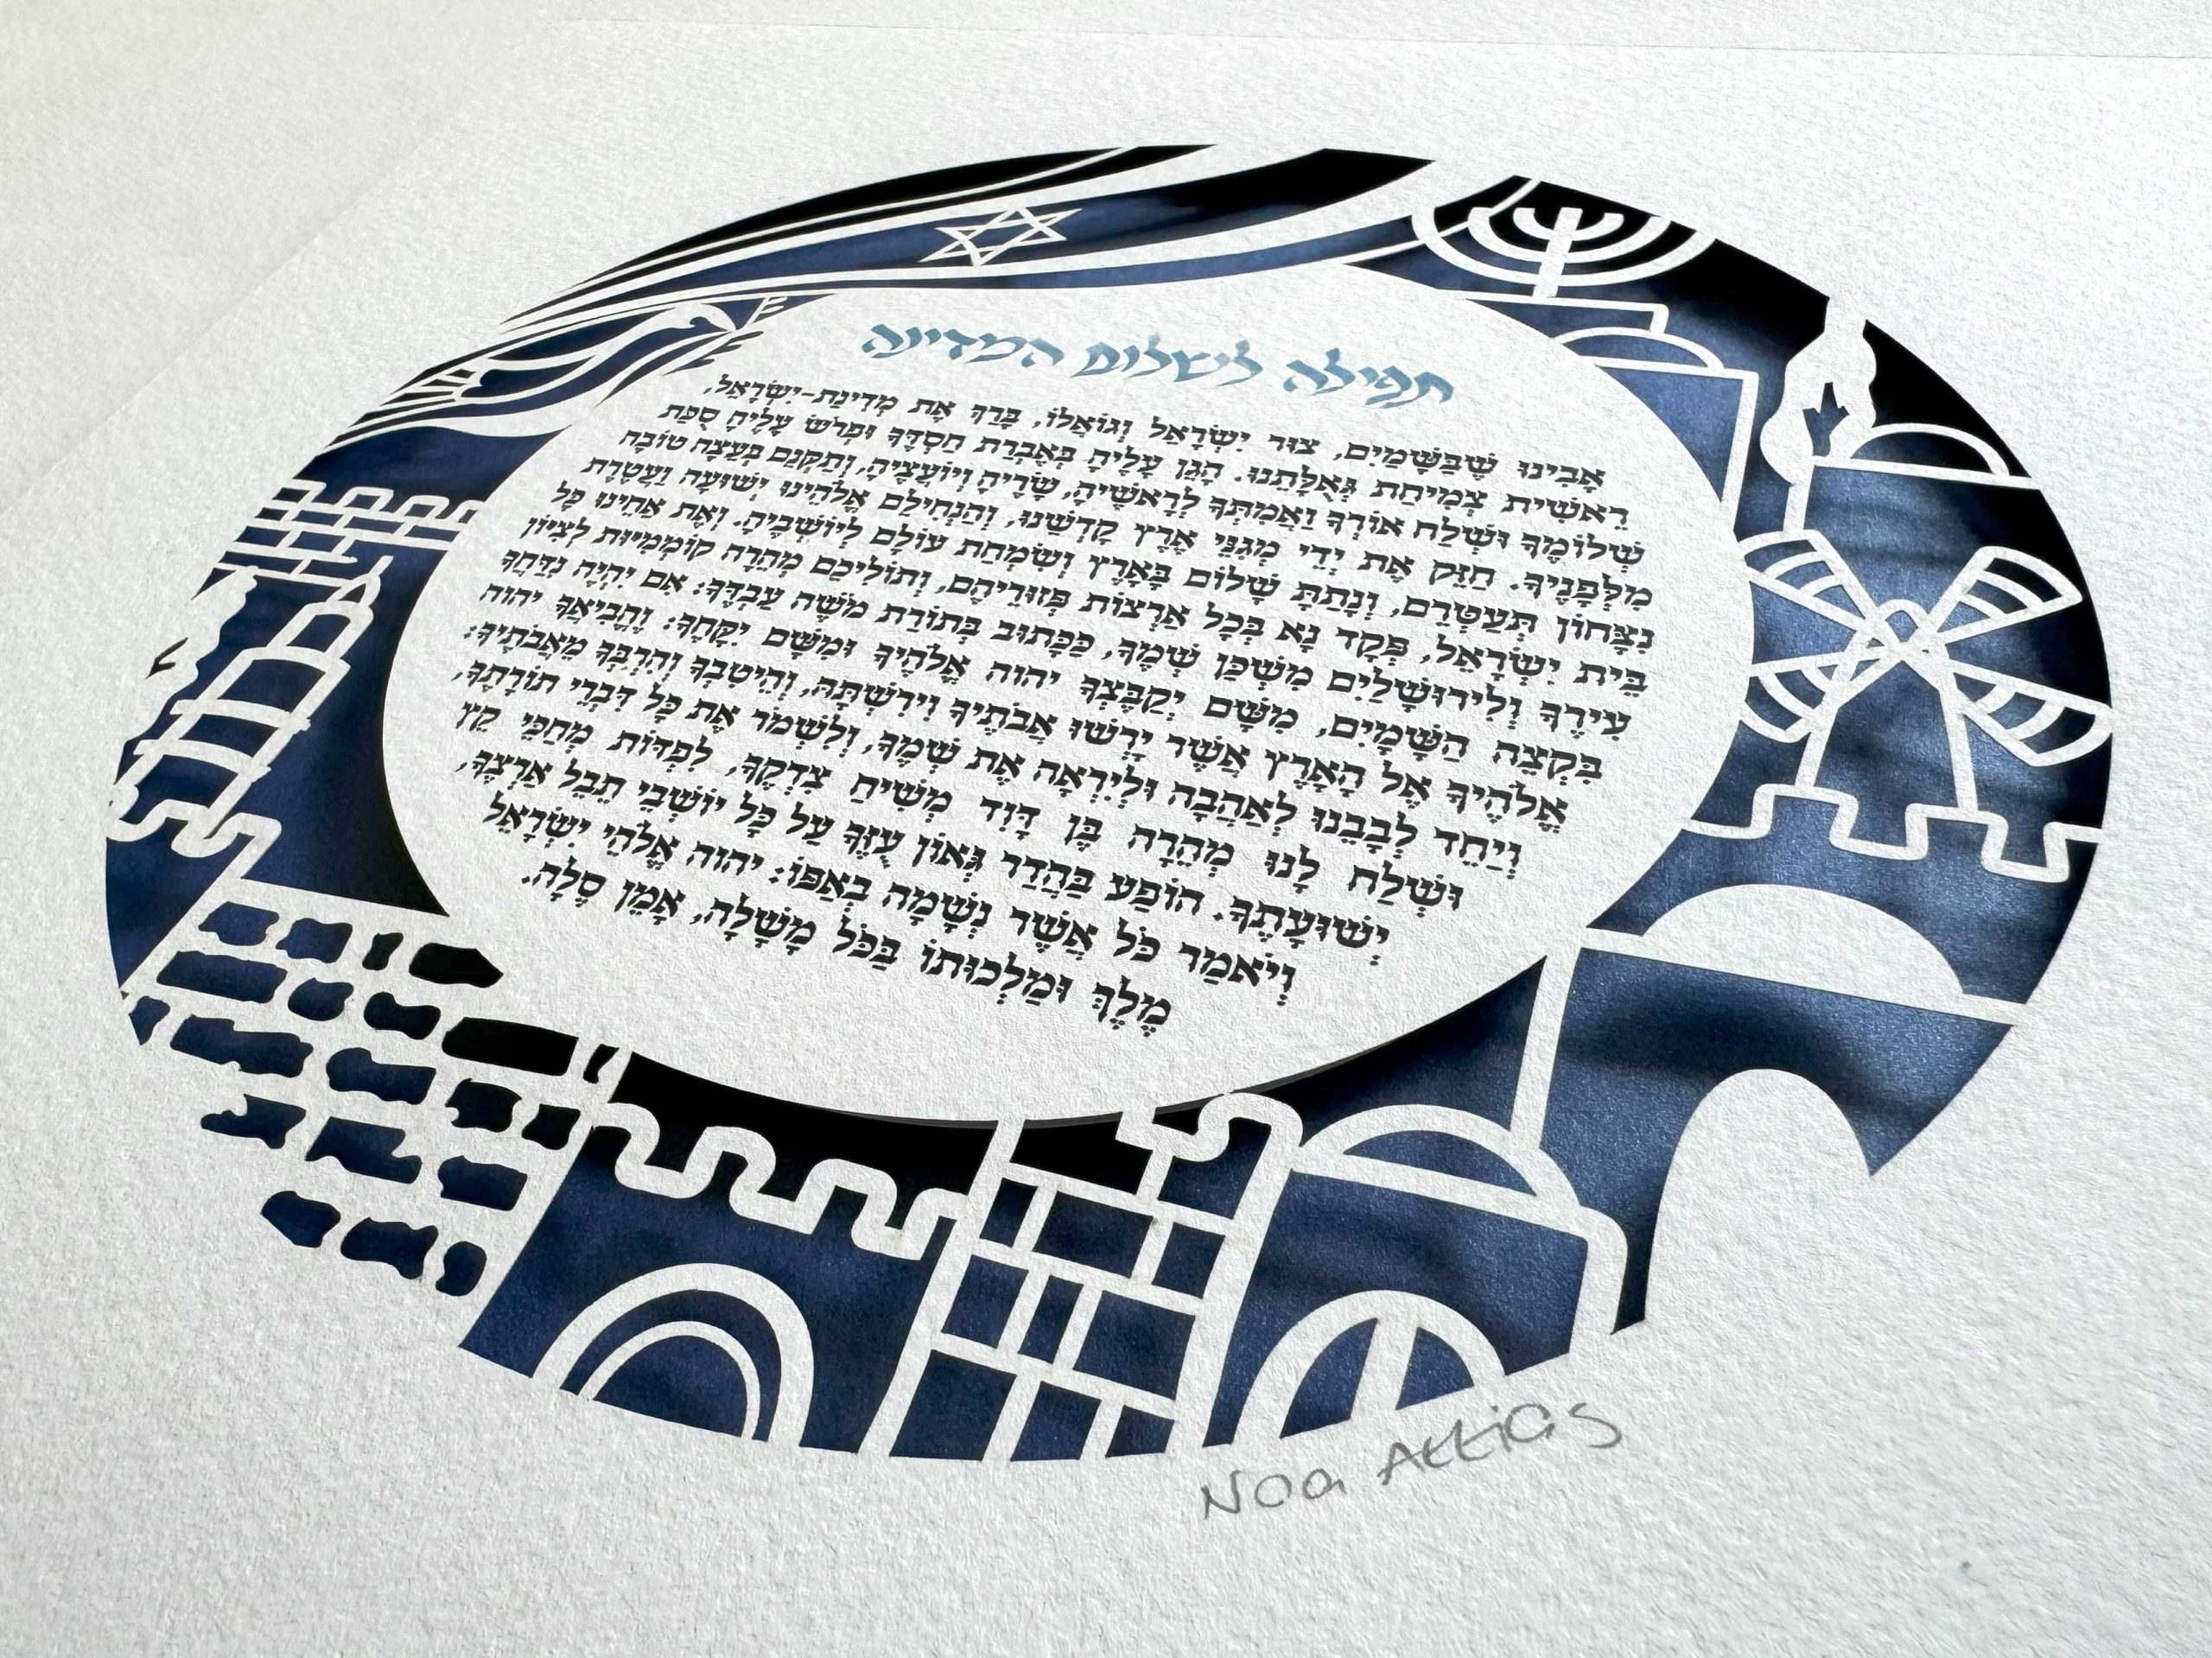 תפילה לשלום המדינה
אָבִינוּ שֶׁבַּשָּׁמַיִם, צוּר יִשְׂרָאֵל וְגוֹאֲלוֹ, בָּרֵךְ אֶת מְדִינַת-יִשְׂרָאֵל,
רֵאשִׁית צְמִיחַת גְּאֻלָּתֵנוּ. הָגֵן עָלֶיהָ בְּאֶבְרַת חַסְדֶּךָ וּפְרֹשׂ עָלֶיהָ סֻכַּת
שְׁלוֹמֶךָ וּשְׁלַח אוֹרְךָ וַאֲמִתְּךָ לְרָאשֶׁיהָ, שָׂרֶיהָ וְיוֹעֲצֶיהָ, וְתַקְּנֵם בְּעֵצָה טוֹבָה
מִלְּפָנֶיךָ. חַזֵּק אֶת יְדֵי מְגִנֵּי אֶרֶץ קָדְשֵׁנוּ, וְהַנְחִילֵם אֱלֹהֵינוּ יְשׁוּעָה וַעֲטֶרֶת
נִצָּחוֹן תְּעַטְּרֵם, וְנָתַתָּ שָׁלוֹם בָּאָרֶץ וְשִׂמְחַת עוֹלָם לְיוֹשְׁבֶיהָ. וְאֶת אַחֵינוּ כָּל
בֵּית יִשְׂרָאֵל, פְּקָד נָא בְּכָל אַרְצוֹת פְּזוּרֵיהֶם, וְתוֹלִיכֵם מְהֵרָה קוֹמְמִיּוּת לְצִיּוֹן
עִירֶךָ וְלִירוּשָׁלַיִם מִשְׁכַּן שְׁמֶךָ, כַּכָּתוּב בְּתוֹרַת מֹשֶׁה עַבְדֶּךָ: אִם יִהְיֶה נִדַּחֲךָ
בִּקְצֵה הַשָּׁמַיִם, מִשָּׁם יְקַבֶּצְךָ יהוה אֱלֹהֶיךָ וּמִשָּׁם יִקָּחֶךָ: וֶהֱבִיאֲךָ יהוה
אֱלֹהֶיךָ אֶל הָאָרֶץ אֲשֶׁר יָרְשׁוּ אֲבֹתֶיךָ וִירִשְׁתָּהּ, וְהֵיטִבְךָ וְהִרְבְּךָ מֵאֲבֹתֶיךָ:
וְיַחֵד לְבָבֵנוּ לְאַהֲבָה וּלְיִרְאָה אֶת שְׁמֶךָ, וְלִשְׁמֹר אֶת כָּל דִּבְרֵי תוֹרָתֶךָ,
וּשְׁלַח לָנוּ מְהֵרָה בֶּן דָּוִד מְשִׁיחַ צִדְקֶךָ, לִפְדּוֹת מְחַכֵּי קֵץ
יְשׁוּעָתֶךָ. הוֹפַע בַּהֲדַר גְּאוֹן עֻזֶּךָ עַל כָּל יוֹשְׁבֵי תֵבֵל אַרְצֶךָ,
וְיֹאמַר כֹּל אֲשֶׁר נְשָׁמָה בְאַפּוֹ: יהוה אֱלֹהֵי יִשְׂרָאֵל
מֶלֶךְ וּמַלְכוּתוֹ בַּכֹּל מָשָׁלָה, אָמֵן סֶלָה.
Noa Attias